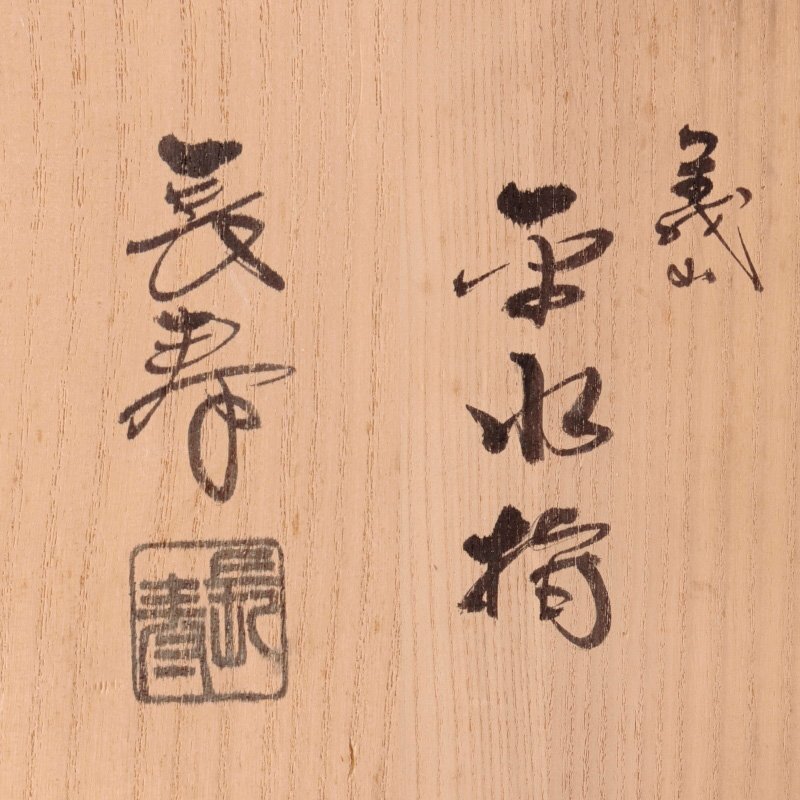 義山
平水指
長寿
長壽